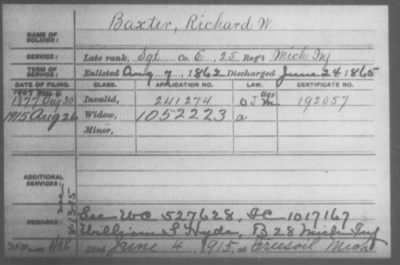 Baxter, Richard W
NAME OF
SOLDIER:
SERVICE: Late rank, Sgt Co. E, 25 Reg't Mich Inf
TERM OF
SERVICE: Enlisted Aug 7, 1862 Discharged June 24 1865
DATE OF FILING. CLASS. APPLICATION NO. LAW. CERTIFICATE NO.
1877 Aug 30 Invalid, 241274 192057
1915 Aug 26 Widow, 1052223 a
Minor,
ADDITIONAL
SERVICES:
REMARKS: See WC 527628, IC 1017167
William S Hyde, B 28 Mich Inf
Died June 4, 1915, at Mich